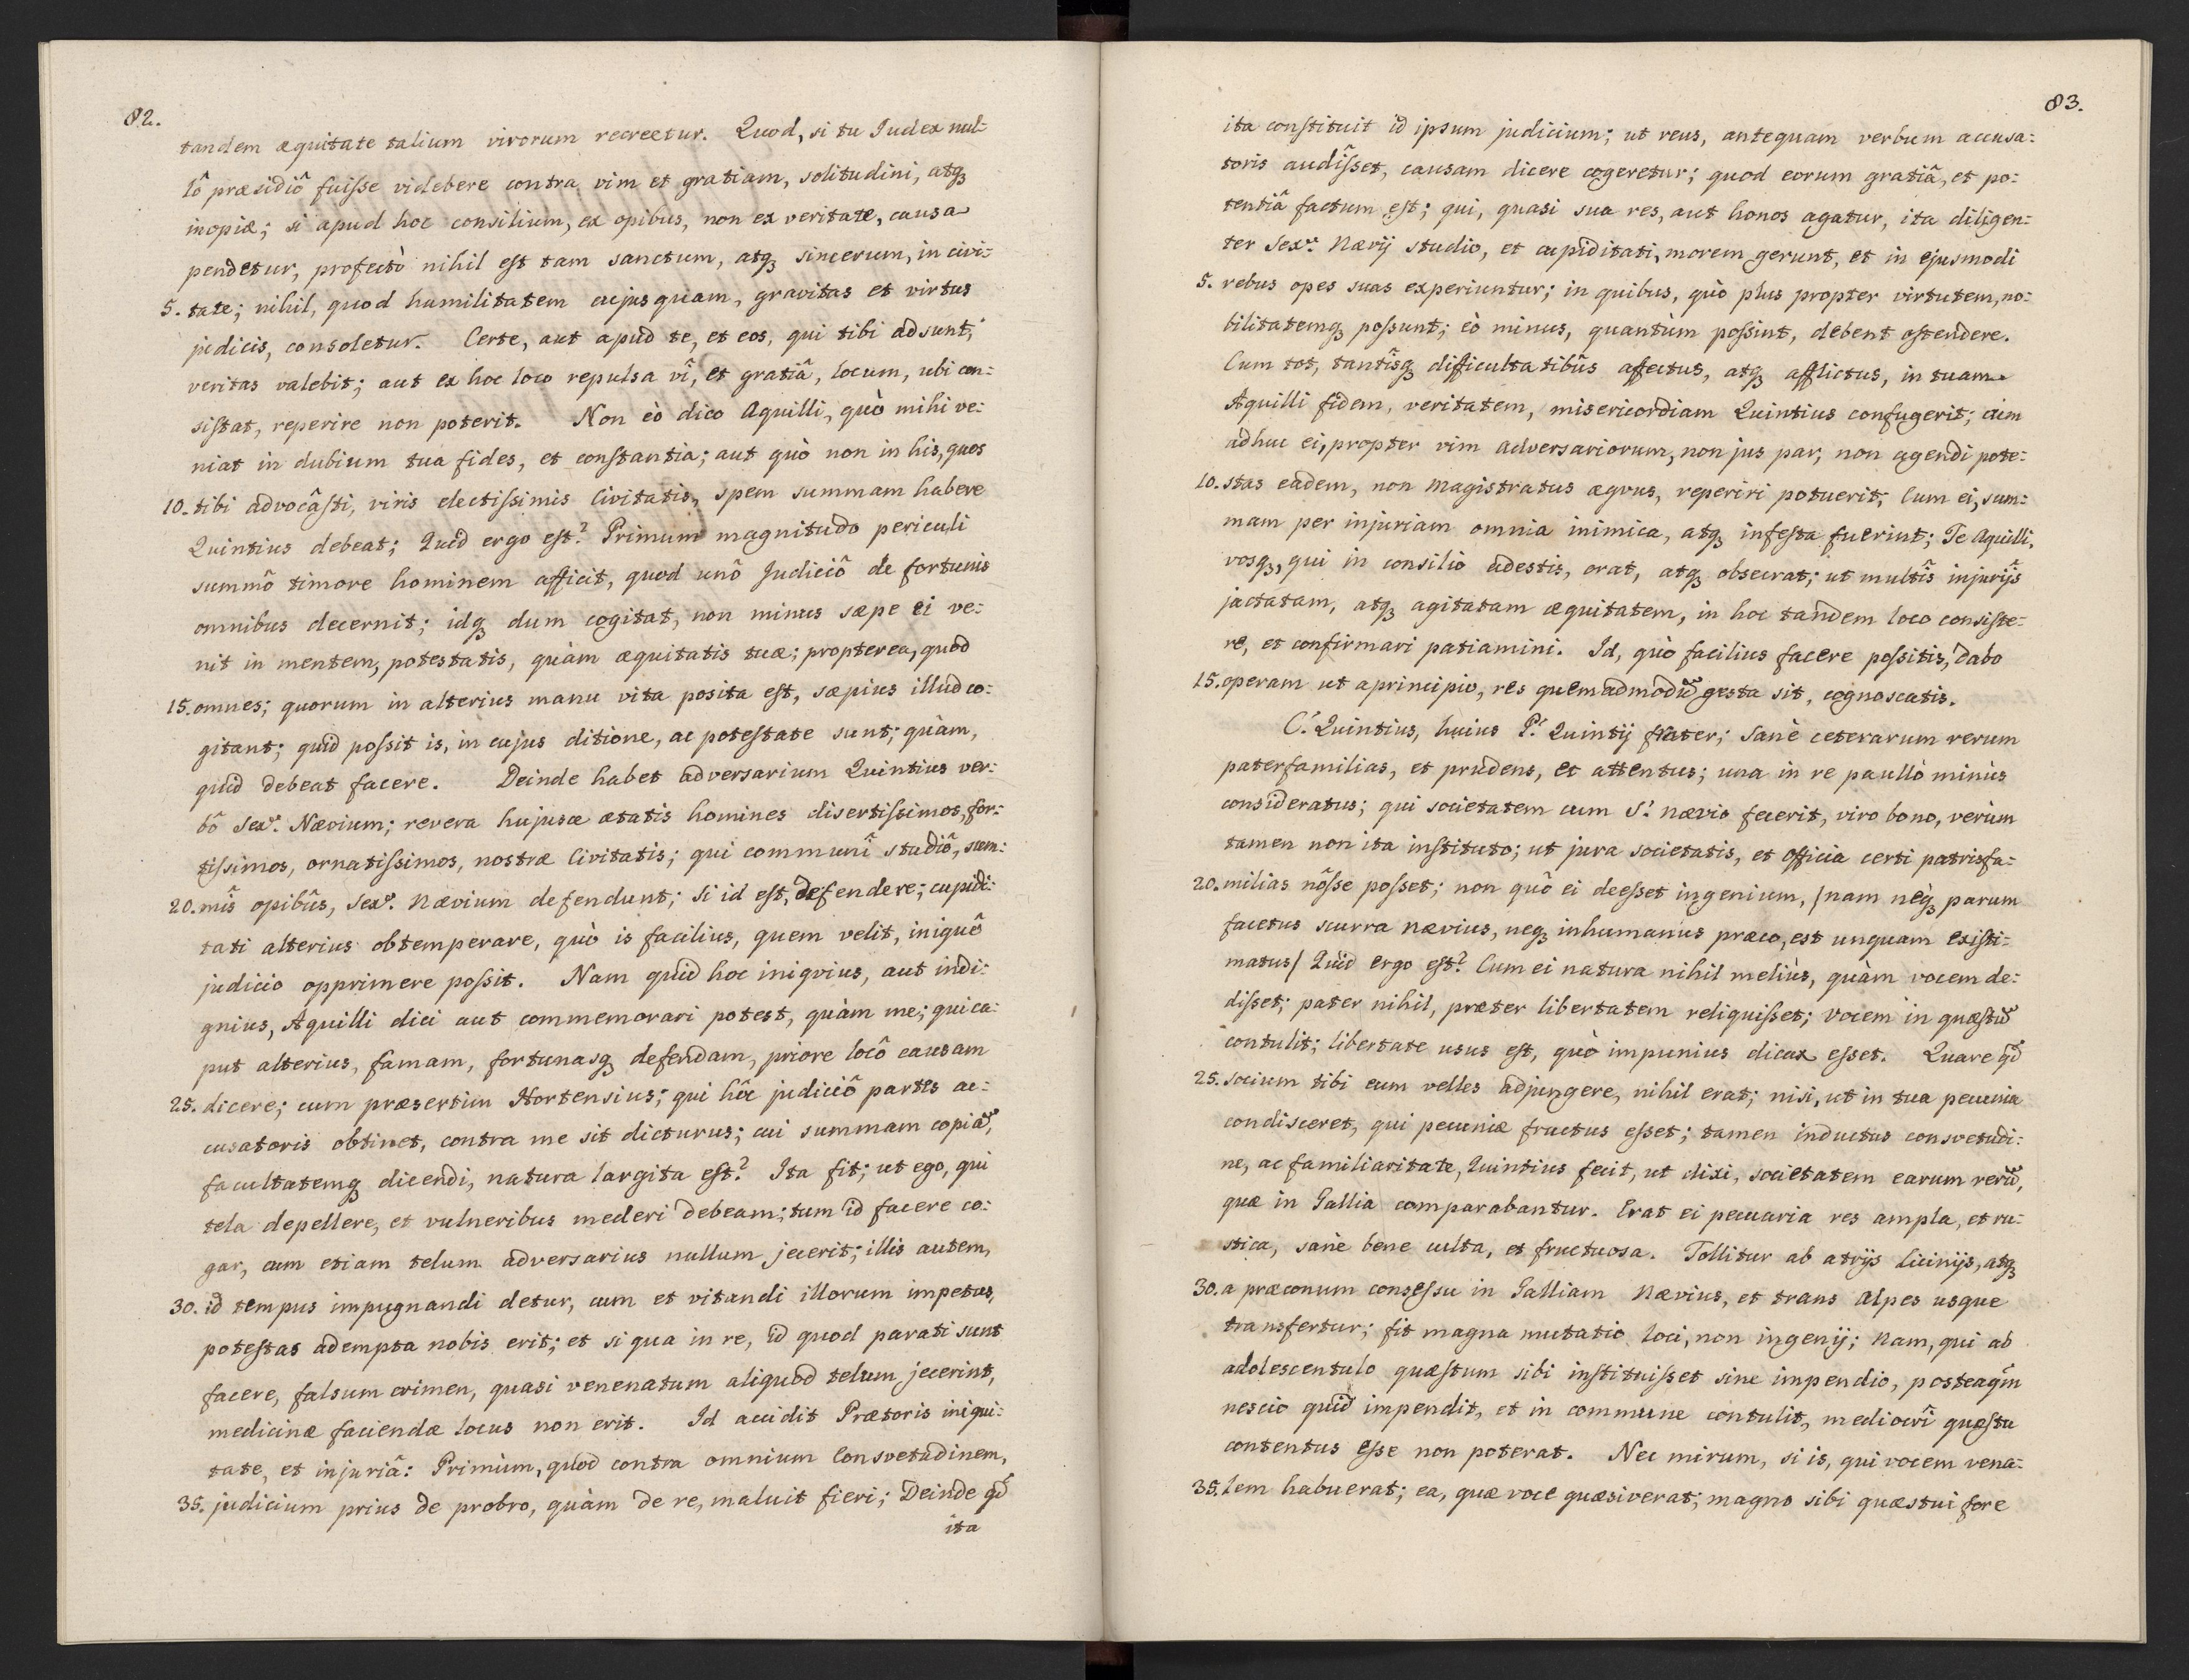 82.
tandem æquitate talium virorum recreetur. Quod, si tu Judex nul=
lô præsidiô fuiſse videbere contra vim et gratiam, solitudini, atq₃
inopiæ; si apud hoc consilium, ex opibus, non ex veritate, causa
pendetur, profectò nihil eſt tam sanctum, atq₃ sincerum, in civi=
5. tate; nihil, quod humilitatem cujusquam, gravitas et virtus
judicis, consoletur. Certe, aut apud te, et eos, qui tibi adsunt,
veritas valebit; aut ex hoc loco repulsa vî, et gratiâ, locum, ubi con=
siſtat, reperire non poterit. Non eò dico Aquilli, quò mihi ve=
niat in dubium tua fides, et conſtantia; aut quò non in his, quos
10. tibi advocâſti, viris electiſsimis Civitatis, spem summam habere
Quintius debeat; Quid ergo eſt? Primum magnitudo periculi
summô timore hominem afficit, quod unô Judiciô de fortunis
omnibus decernit; idq₃ dum cogitat, non minus sæpe ei ve=
nit in mentem, potestatis, quàm æquitatis tuæ; propterea, quod
15. omnes; quorum in alterius manu vita posita eſt, sæpius illud co=
gitant; quid poſsit is, in cujus ditione, ac poteſtate sunt; quàm,
quid debeat facere. Deinde habet adversarium Quintius ver=
bô Sex. Nævium; revera hujusce ætatis homines disertiſsimos, for=
tiſsimos, ornatiſsimos, nostræ Civitatis; qui communî studiô, sum=
20. mîs opibûs, Sex. Nævium defendunt; si id eſt, defendere; cupidi=
tati alterius obtemperare, quò is facilius, quem velit, iniquô
judicio opprimere poſsit. Nam quid hoc iniqvius, aut indi=
gnius, Aquilli dici aut commemorari potest, quàm me; qui ca=
put alterius, famam, fortunasq₃ defendam, priore locô causam
25. dicere; cum præsertim Hortensius; qui hôc judiciô partes ac=
cusatoris obtinet, contra me sit dicturus; cui summam copiã,
facultatemq₃ dicendi, natura largita eſt? Ita fit; ut ego, qui
tela depellere, et vulneribus mederi debeam; tum id facere co=
gar, cum etiam telum adversarius nullum jecerit; illis autem,
30. id tempus impugnandi detur, cum et vitandi illorum impetus,
poteſtas adempta nobis erit; et si qua in re, id quod parati sunt
facere, falsum crimen, quasi venenatum aliquod telum jecerint,
medicinæ faciendæ locus non erit. Id accidit Prætoris iniqui=
tate, et injuriâ: Primùm, quod contra omnium Consvetudinem,
35. judicium prius de probro, quàm de re, maluit fieri; Deinde qd̃
ita
83.
ita conſtituit id ipsum judicium; ut reus, antequam verbum accusa=
toris audîſset, causam dicere cogeretur; quod eorum gratiâ, et po=
tentiâ factum eſt; qui, quasi sua res, aut honos agatur, ita diligen=
ter Sex. Nævij studio, et cupiditati, morem gerunt, et in ejusmodi
5. rebus opes suas experiuntur; in quibus, quò plus propter virtutem, no=
bilitatemq₃ poſsunt; eò minus, quantùm poſsint, debent oſtendere.
Cum tot, tantîsq₃ difficultatibûs affectus, atq₃ afflictus, in tuam
Aquilli fidem, veritatem, misericordiam Quintius confugerit; cùm
adhuc ei, propter vim adversariorum, non jus par, non agendi pote=
10. stas eadem, non magistratus æqvus, reperiri potuerit; Cum ei, sum=
mam per injuriam omnia inimica, atq₃ infeſta fuerint; Te Aquilli,
vosq₃, qui in consilio adestis, orat, atq₃ obsecrat; ut multîs injurijs
jactatam, atq₃ agitatam æquitatem, in hoc tandem loco consiſte=
re, et confirmari patiamini. Id, quò facilius facere poſsitis, dabo
15. operam ut a principio, res quemadmodũ gesta sit, cognoscatis.
C. Quintius, huius P. Quintij frater; Sanè ceterarum rerum
paterfamilias, et prudens, et attentus; una in re paullò minùs
consideratus; qui societatem cum S. nævio fecerit, viro bono, verùm
tamen non ita inſtituto; ut jura societatis, et officia certi patrisfa=
20. milias nôſse poſset; non quò ei deeſset ingenium, /nam neq₃ parum
facetus scurra nævius, neq₃ inhumanus præco, est unquam exiſti=
matus/ Quid ergo eſt? Cum ei natura nihil meliùs, quàm vocem de=
diſset; pater nihil, præter libertatem reliquiſset; vocem in quæſtũ
contulit; libertate usus eſt, quò impunius dicax eſset. Quare qd̃
25. socium tibi eum velles adjungere, nihil erat; nisi, ut in tua pecunia
condisceret, qui pecuniæ fructus eſset; tamen inductus consvetudi=
ne, ac familiaritate, Quintius fecit, ut dixi, societatem earum rerũ,
quæ in Gallia comparabantur. Erat ei pecuaria res ampla, et ru=
stica, sanè bene culta, et fructuosa. Tollitur ab atrijs Licinijs, atq₃
30. a præconum conseſsu in Galliam Nævius, et trans Alpes usque
transfertur; fit magna mutatio loci, non ingenij; Nam, qui ab
adolescentulo quæſtum sibi inſtituiſset sine impendio, posteaqm̃
nescio quid impendit, et in commune contulit, mediocrî quæſtu
contentus eſse non poterat. Nec mirum, si is, qui vocem vena=
35. lem habuerat; ea, quæ voce quæsiverat; magno sibi quæstui fore